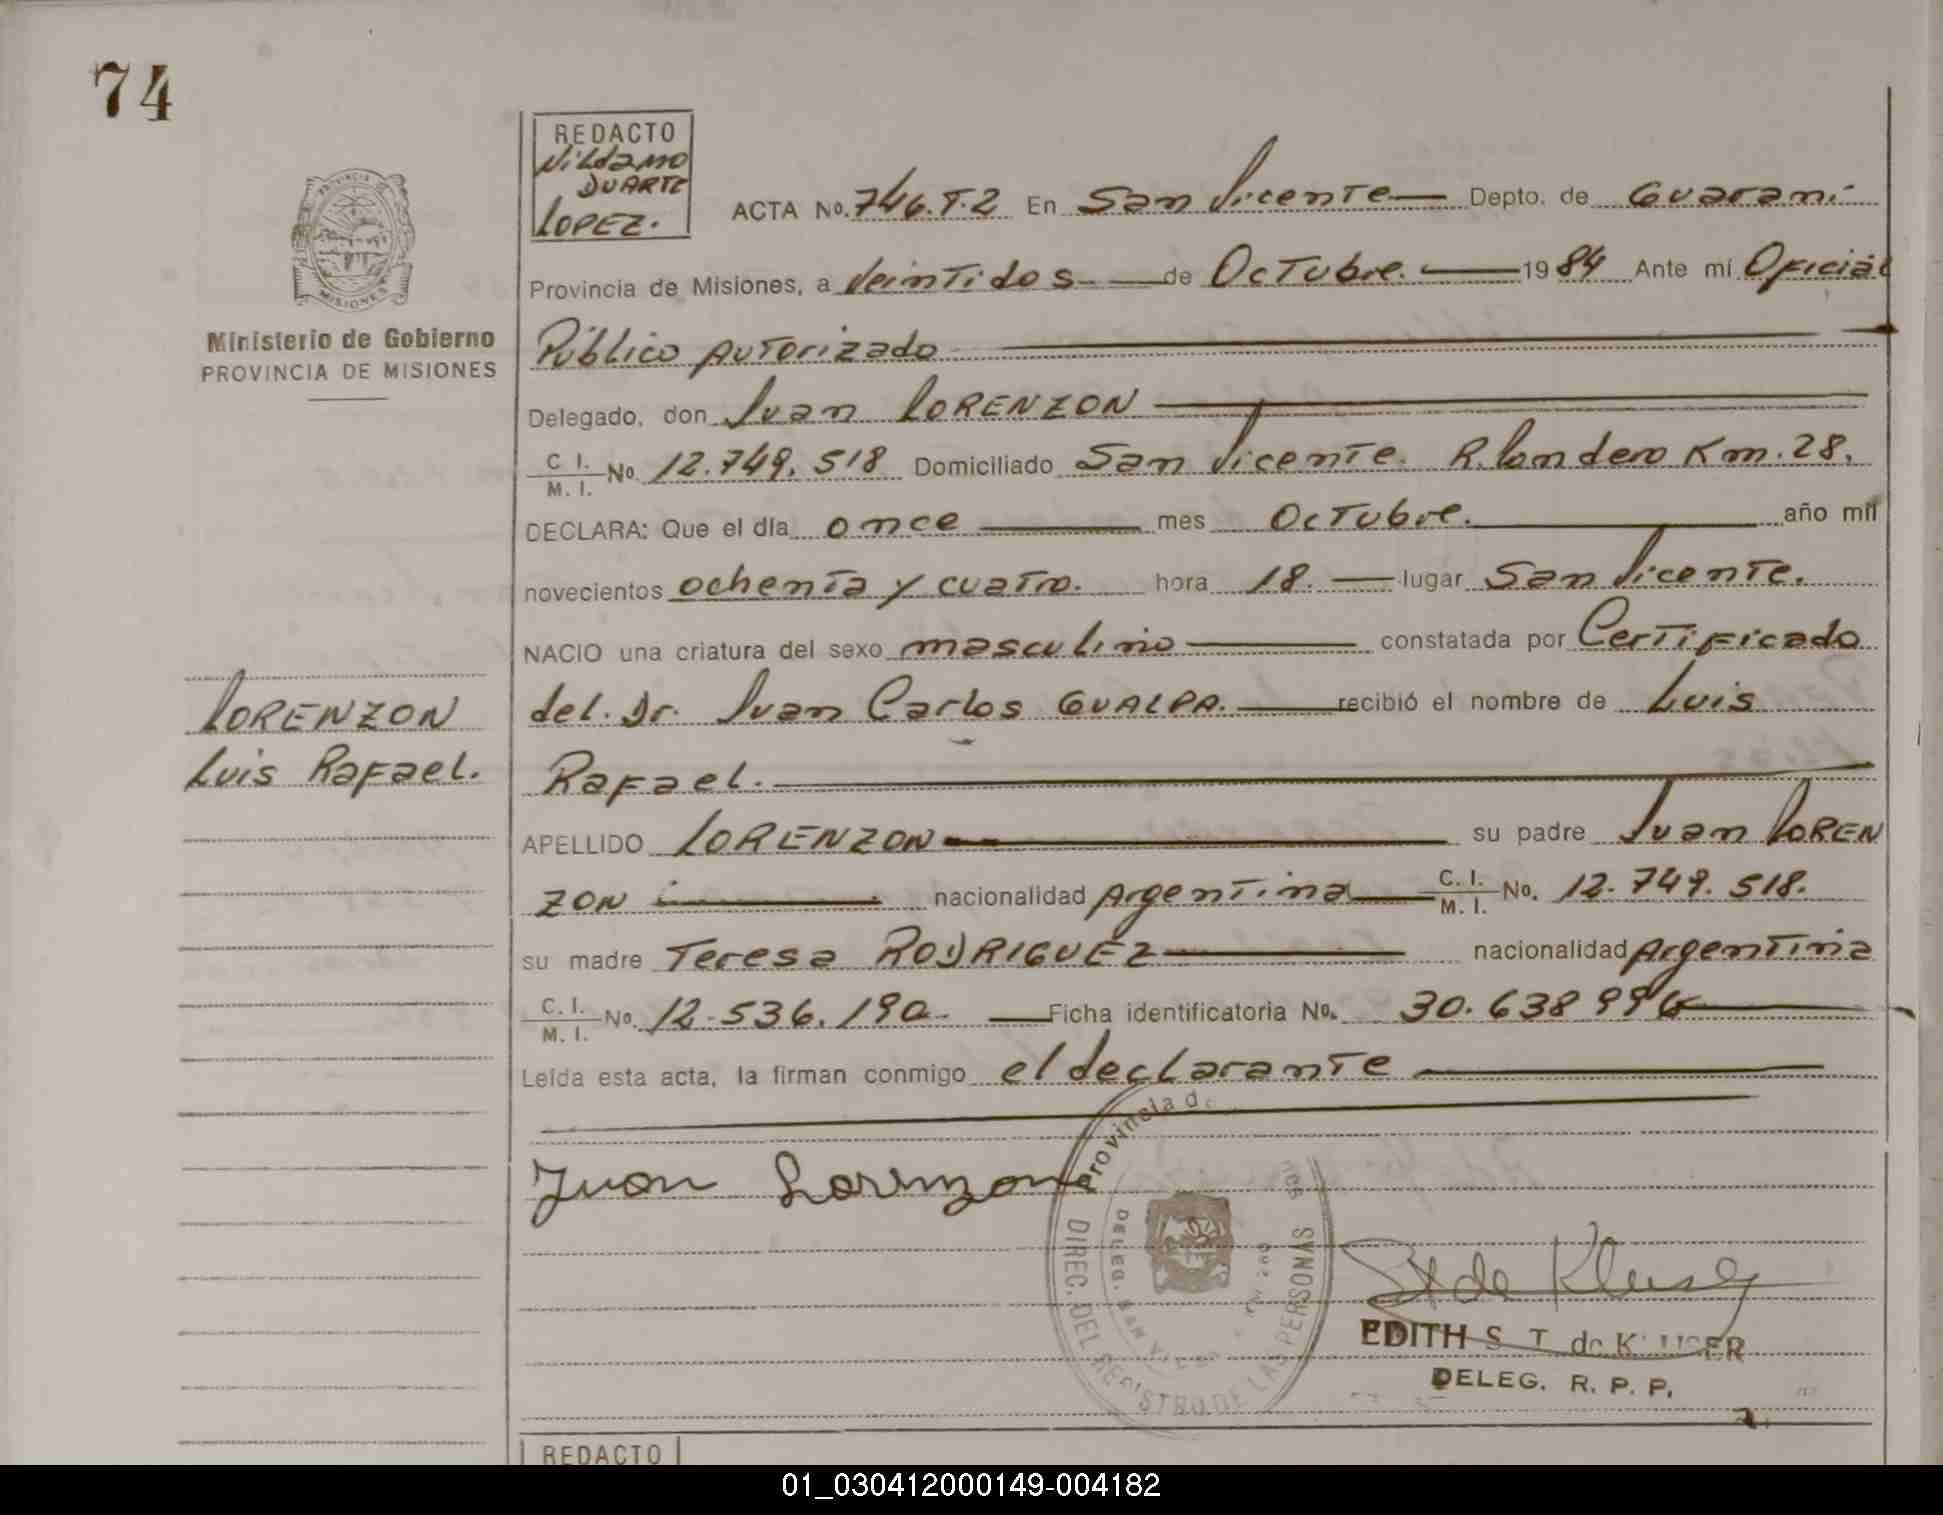 74
REDACTO
Nildamo
DUARTE
LOPEZ.
ACTA No. 746.T.2 En San Vicente Depto. de Guaraní
Provincia de Misiones, a Veintidos de Octubre. 1984 Ante mí Oficial
Público Autorizado
Delegado, don Juan LORENZON
C. I. M. I. No. 12.749.518 Domiciliado San Vicente. R. Londero Km. 28.
DECLARA: Que el día once mes Octubre. año mil
novecientos ochenta y cuatro. hora 18. lugar San Vicente.
NACIO una criatura del sexo masculino constatada por Certificado
del. Dr. Juan Carlos GUALPA. recibió el nombre de Luis
Rafael.
APELLIDO LORENZON su padre Juan LOREN
ZON nacionalidad Argentina C. I. M. I. No. 12.749.518.
su madre Teresa RODRIGUEZ nacionalidad Argentina
C. I. M. I. No. 12.536.190. Ficha identificatoria No. 30.638.996
Leída esta acta, la firman conmigo el declarante
PROVINCIA DE MISIONES
Ministerio de Gobierno
PROVINCIA DE MISIONES
LORENZON
Luis Rafael.
Juan Lorenzon
Provincia d.
DIREC. DEL REGISTRO DE LAS PERSONAS
DELEG. SAN
EDITH S. T. de K USER
DELEG. R. P. P.
REDACTO
01_030412000149-004182